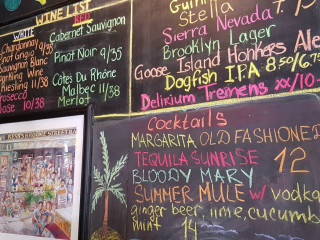 WINE LIST
WHITE
RED
Chardonnay
Pinot Grigio
Sauvignon Blanc
Sparkling Wine
Riesling 11/38
Prosecco
10/38
Cabernet Sauvignon
Pinot Noir 9/35
Côtes Du Rhône
Malbec 11/38
Merlot
Stella
Sierra Nevada
Brooklyn Lager
Goose Island Honkers Ale
Dogfish IPA 8.50/6.75
Delirium Tremens xx/10
Cocktails
MARGARITA OLD FASHIONED
TEQUILA SUNRISE 12
BLOODY MARY
SUMMER MULE w/ vodka
ginger beer, lime, cucumb
mint 14